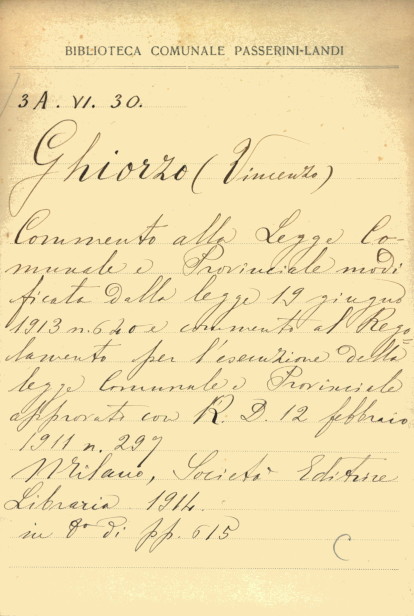 BIBLIOTECA COMUNALE PASSERINI-LANDI
3A. VI. 30.
Ghiorzo (Vincenzo)
Commento alla Legge Co-
munale e Provinciale modi
ficata dalla legge 19 giugno
1913 n. 640 e commento al Rego=
lamento per l'esecuzione della
legge Comunale e Provinciale
approvato con R. D. 12 febbraio
1911 n. 297
Milano, Società Editrice
Libraria 1914.
in 8° di pp. 615
C